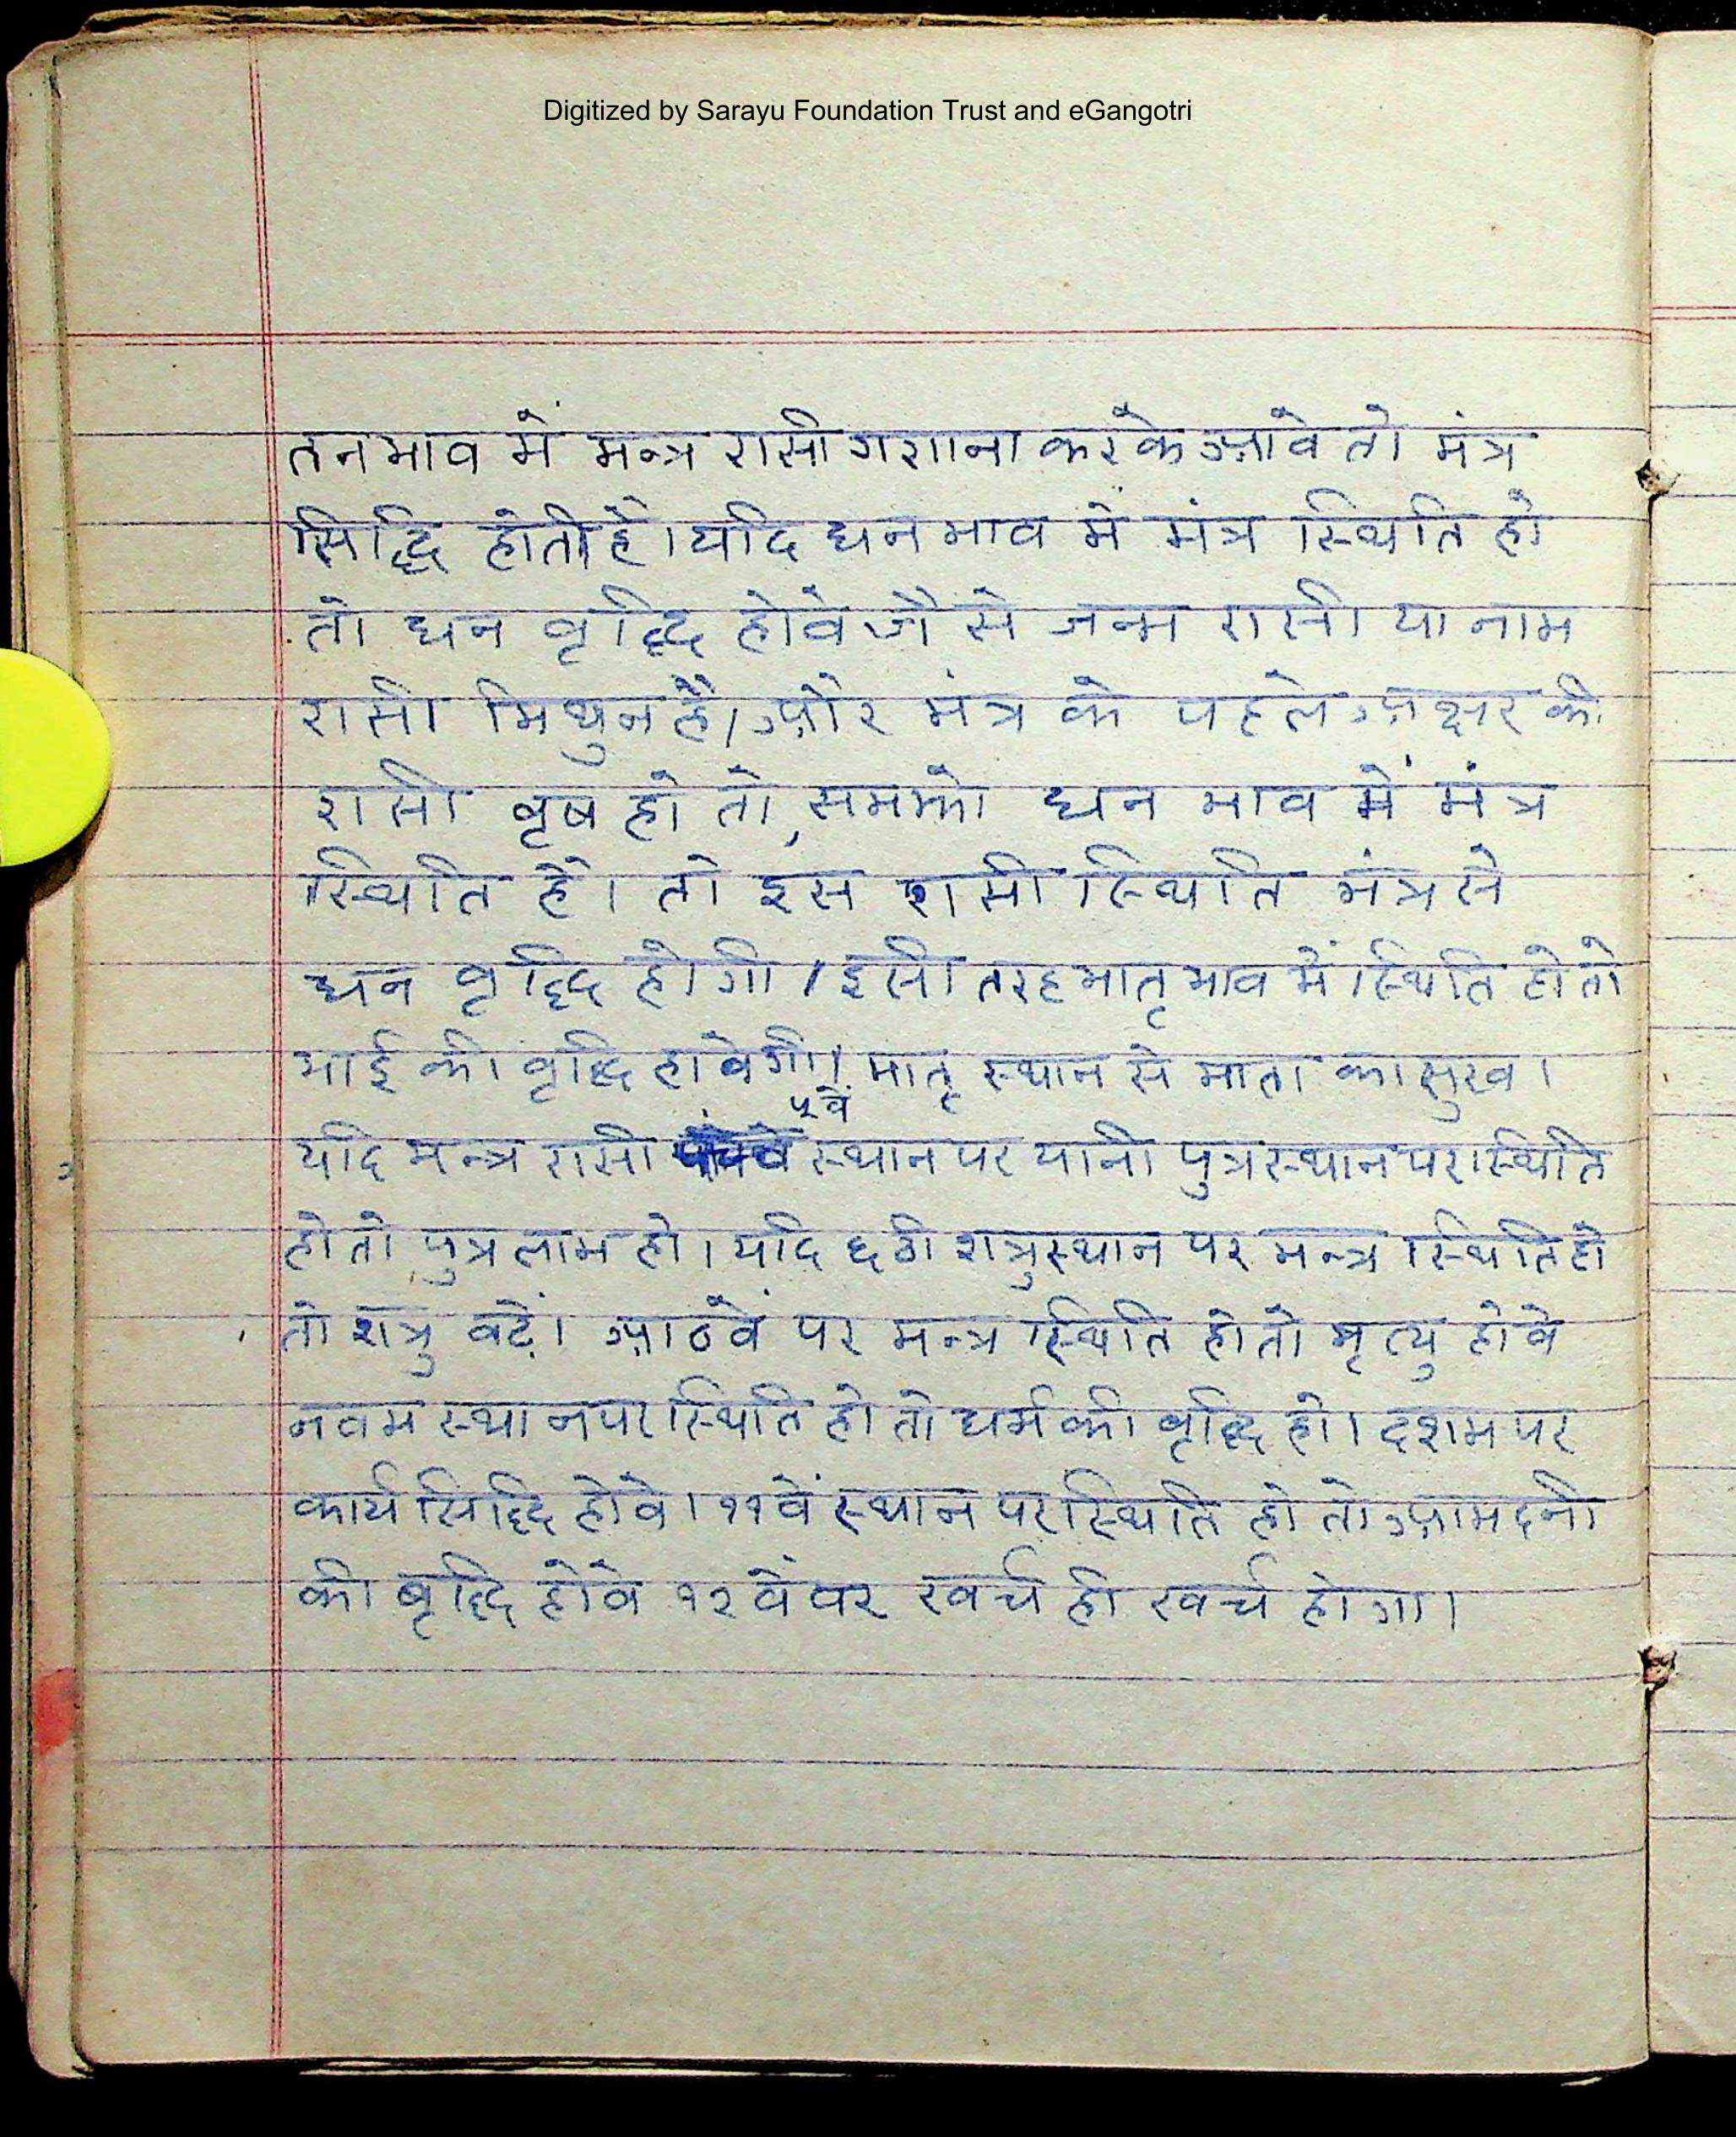 Digitized by Sarayu Foundation Trust and eGangotri
तनभाव में मन्त्र रासी गणना करके आवे तो मंत्र
सिद्धि होती है। यदि धन भाव में मंत्र स्थिति हो
तो धन वृद्धि होवे जैसे जन्म रासी या नाम
रासी मिथुन है। और मंत्र के पहले अक्षर की
रासी वृष हो तो, समझो धन भाव में मंत्र
स्थिति है। तो इस रासी स्थिति मंत्र से
धन वृद्धि होगी। इसी तरह भातृ भाव में स्थिति हो तो
भाई की वृद्धि होवेगी। मातृ स्थान से माता का सुख।
५वें
यदि मन्त्र रासी स्थान पर यानी पुत्र स्थान पर स्थिति
हो तो पुत्र लाभ हो। यदि छठी शत्रुस्थान पर मन्त्र स्थिति हो
तो शत्रु बढ़ें। आठवें पर मन्त्र स्थिति हो तो मृत्यु होवे
नवम स्थान पर स्थिति हो तो धर्म की वृद्धि हो। दशम पर
कार्य सिद्धि होवे। ११वें स्थान पर स्थिति हो तो आमदनी
की वृद्धि होवे १२ वें पर खर्च ही खर्च होगा।